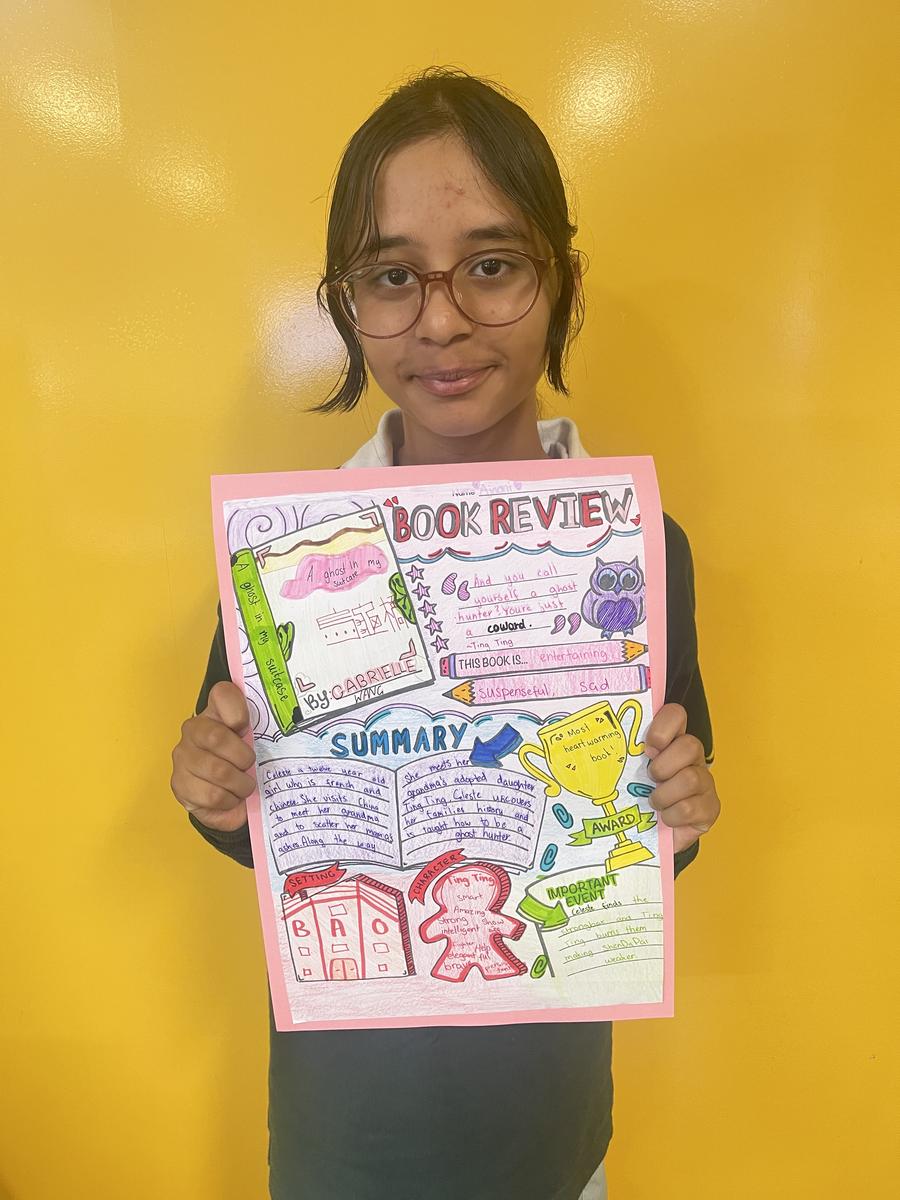 Name Avani
BOOK REVIEW
A ghost in my suitcase
A ghost in my
suitcase
BY: GABRIELLE
WANG
And you call
yourself a ghost
hunter? You're just
a coward.
~Ting Ting
THIS BOOK IS... entertaining,
suspenseful, sad
SUMMARY
Celeste a twelve year old
girl who is french and
chinese. She visits China
to meet her grandma
and to scatter her mama's
ashes. Along the way
she meets her
grandma's adopted daughter
Ting Ting. Celeste uncovers
her families history and
is taught how to be a
ghost hunter.
Most
heartwarming
book!
AWARD
SETTING
BAO
CHARACTER
Ting Ting
smart
Amazing
strong
intelligent
Fighter
elegant
Help
ful
brave
IMPORTANT
EVENT
Celeste finds the
strongbox and Ting
Ting burns them
making ShenDaPai
weaker.